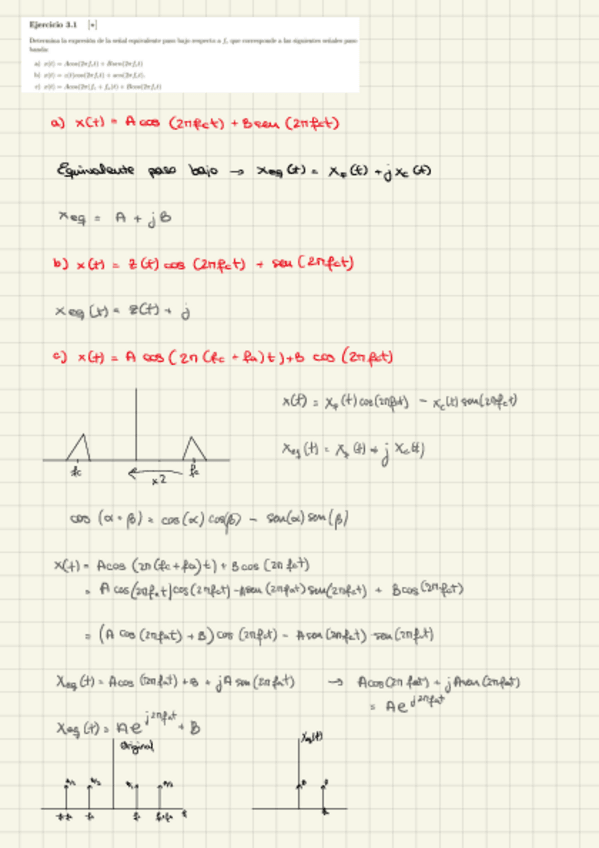 Ejercicio 3.1 [*]
Determina la expresión de la señal equivalente paso bajo respecto a fc que corresponde a las siguientes señales paso
banda:
a) x(t) = Acos(2πfct) + Bsen(2πfct)
b) x(t) = z(t)cos(2πfct) + sen(2πfct).
c) x(t) = Acos(2π(fc + fa)t) + Bcos(2πfct)
a) x(t) = A cos (2πfct) + B sen (2πfct)
Equivalente paso bajo → xeq (t) = xf (t) + j xc (t)
xeq = A + jB
b) x(t) = z(t) cos (2πfct) + sen (2πfct)
xeq (t) = z(t) + j
c) x(t) = A cos (2π (fc + fa) t) + B cos (2πfct)
x(t) = xf (t) cos(2πfct) - xc(t) sen(2πfct)
xeq (t) = xf (t) + j xc(t)
fc fc
x2
cos (α + β) = cos(α) cos(β) - sen(α) sen(β)
x(t) = Acos (2π(fc+fa)t) + B cos (2π fct)
= A cos(2πfat)cos(2πfct) - Asen (2πfat) sen(2πfct) + Bcos(2πfct)
= (A cos (2πfat) + B) cos (2πfct) - A sen(2πfat) sen(2πfct)
xeq (t) = Acos (2πfat) + B + jA sen (2πfat) → Acos(2π fat) + jAsen (2πfat)
= Ae^j2πfat
xeq (t) = Ae^j2πfat + B
Original xeq(t)